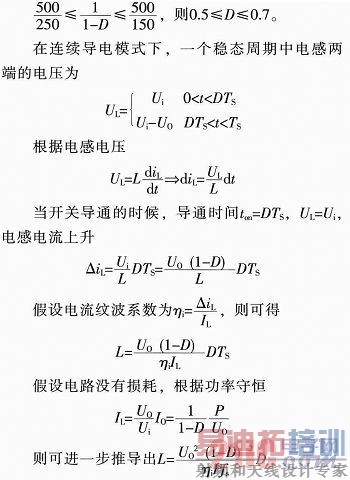 500/250≤1/(1-D)≤500/150，则0.5≤D≤0.7。
在连续导电模式下，一个稳态周期中电感两
端的电压为
U_L={U_i 0<t<DT_S
U_i-U_O DT_S<t<T_S
根据电感电压
U_L=L di_L/dt⇒di_L=U_L/L dt
当开关导通的时候，导通时间t_on=DT_S，U_L=U_i，
电感电流上升
Δi_L=U_i/L DT_S=U_O (1-D)/L DT_S
假设电流纹波系数为η_i=Δi_L/I_L，则可得
L=U_O (1-D)/η_iI_L DT_S
假设电路没有损耗，根据功率守恒
I_L=U_O/U_i I_O=1/(1-D) P/U_O
则可进一步推导出L=U_O²(1-D)
易迪拓培训
射频和天线设计专家